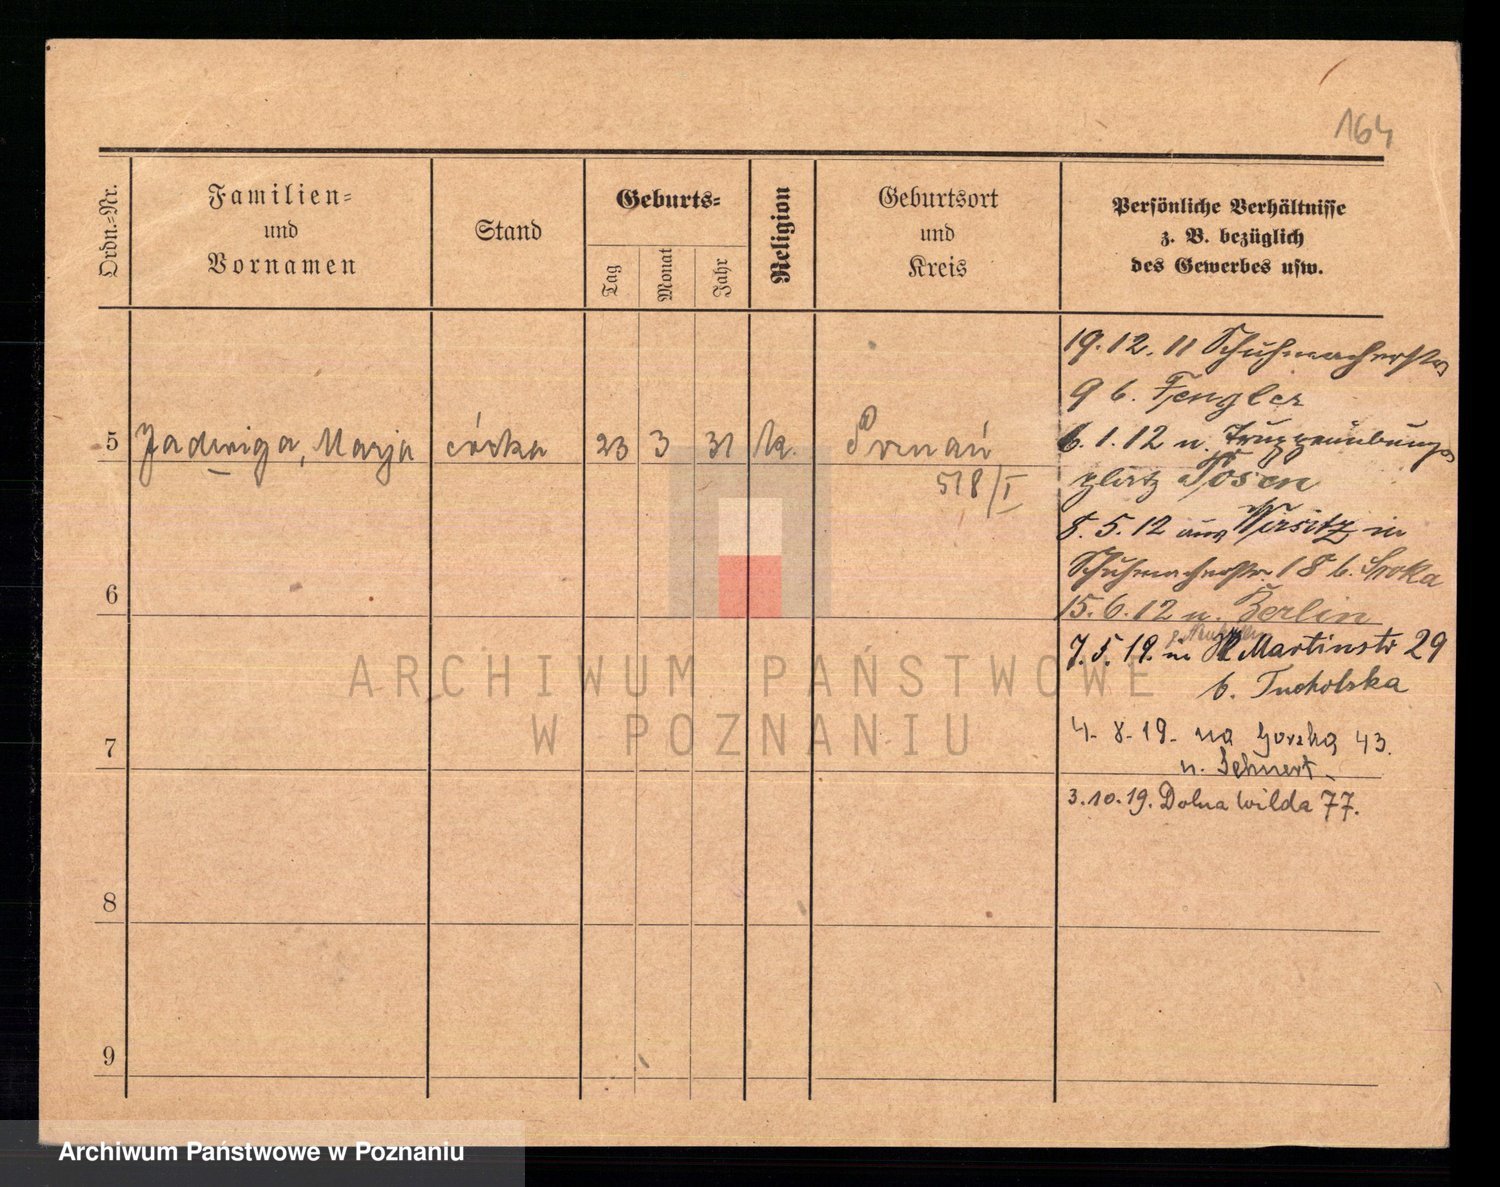 164
Ordn.-Nr.
Familien-
und
Vornamen
Stand
Geburts-
Tag
Monat
Jahr
Religion
Geburtsort
und
Kreis
Persönliche Verhältnisse
z. B. bezüglich
des Gewerbes usw.
19.12.11 Schuhmacherstr
9 b. Fengler
5 Jadwiga, Marja córka 23 3 31 k. Poznań
518/I
6.1.12 n. Truppenübungs
platz Posen
8.5.12 aus Wirsitz in
Schuhmacherstr. 18 b. Sroka
6
15.6.12 n. Berlin
7.5.19. in Martinstr 29
b. Tucholska
4.8.19. na Gorzką 43.
u. Sehnert.
7
3.10.19. Dolna Wilda 77.
8
9
ARCHIWUM PAŃSTWOWE
W POZNANIU
Archiwum Państwowe w Poznaniu